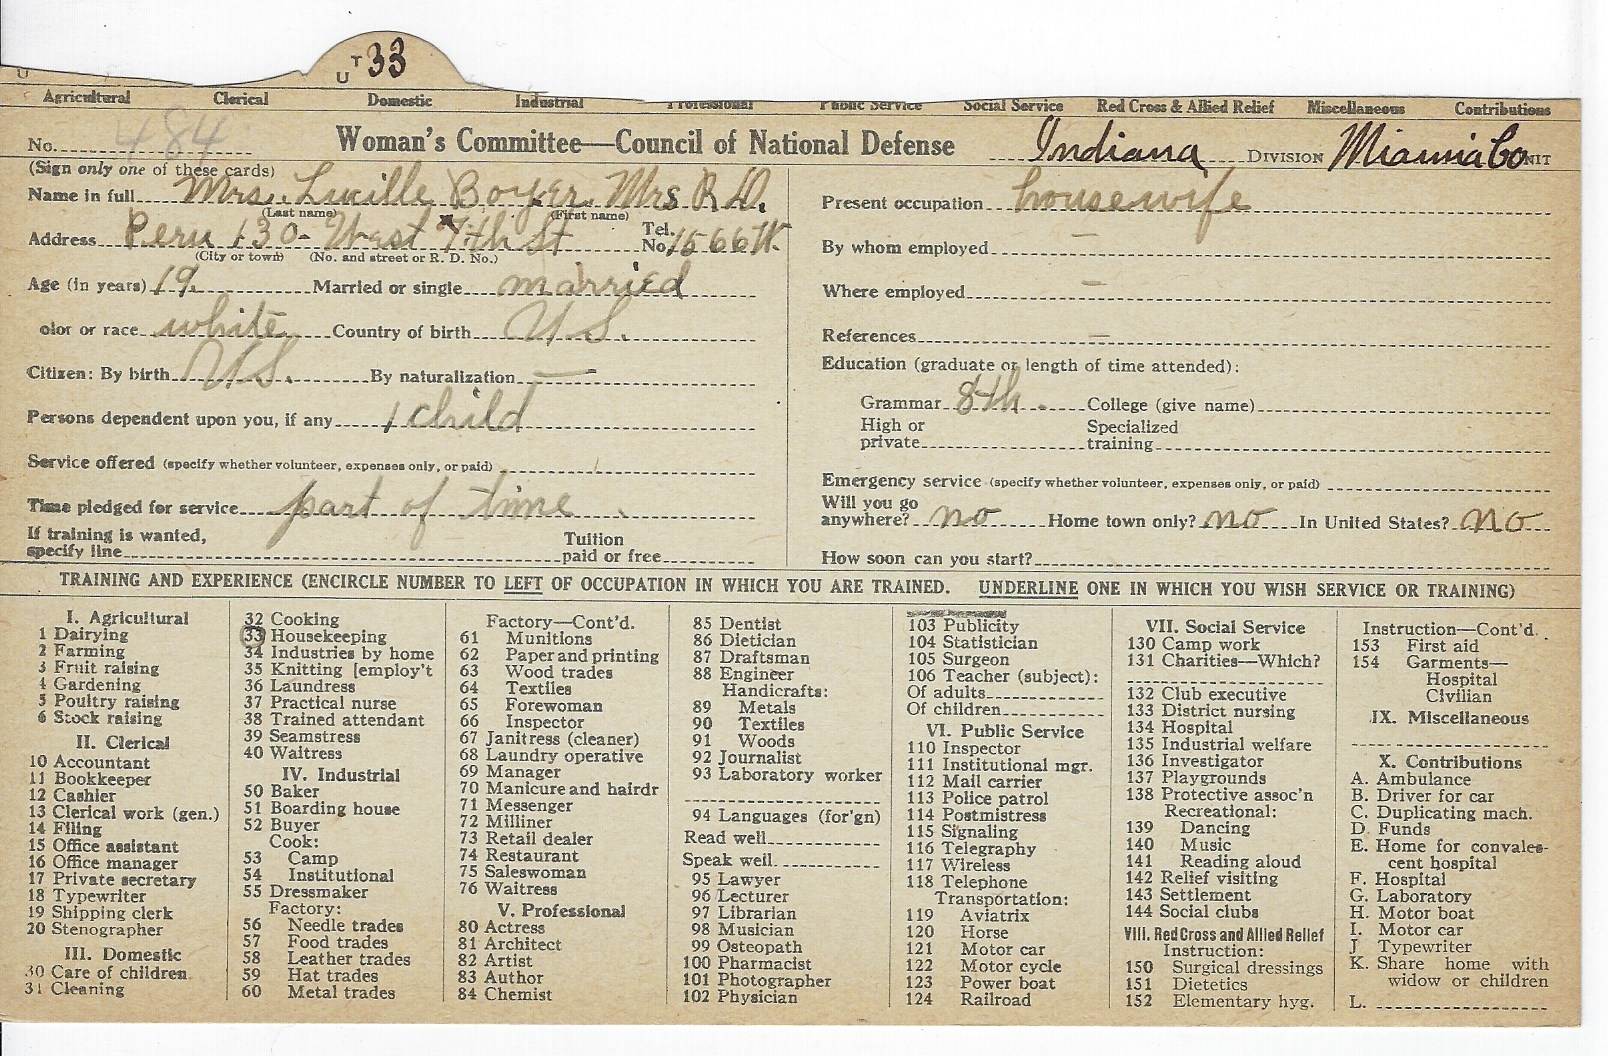 U T 33
U
Agricultural Clerical Domestic Industrial Professional Public Service Social Service Red Cross & Allied Relief Miscellaneous Contributions
No. 484 Woman's Committee—Council of National Defense Indiana DIVISION Miami Co UNIT
(Sign only one of these cards)
Name in full Mrs. Lucille Boyer. Mrs R. D.
(Last name) (First name)
Address Peru 130- West 7th St Tel. No. 1566W.
(City or town) (No. and street or R. D. No.)
Age (in years) 19. Married or single married
olor or race white Country of birth U S.
Citizen: By birth U S. By naturalization —
Persons dependent upon you, if any 1 child
Service offered (specify whether volunteer, expenses only, or paid)
Time pledged for service part of time .
If training is wanted,
specify line Tuition paid or free
Present occupation housewife
By whom employed —
Where employed —
References —
Education (graduate or length of time attended):
Grammar 8th. College (give name)
High or private Specialized training
Emergency service (specify whether volunteer, expenses only, or paid)
Will you go
anywhere? no Home town only? no In United States? no
How soon can you start?
TRAINING AND EXPERIENCE (ENCIRCLE NUMBER TO LEFT OF OCCUPATION IN WHICH YOU ARE TRAINED. UNDERLINE ONE IN WHICH YOU WISH SERVICE OR TRAINING)
I. Agricultural
1 Dairying
2 Farming
3 Fruit raising
4 Gardening
5 Poultry raising
6 Stock raising
II. Clerical
10 Accountant
11 Bookkeeper
12 Cashier
13 Clerical work (gen.)
14 Filing
15 Office assistant
16 Office manager
17 Private secretary
18 Typewriter
19 Shipping clerk
20 Stenographer
III. Domestic
30 Care of children
31 Cleaning
32 Cooking
33 Housekeeping
34 Industries by home
35 Knitting [employ't
36 Laundress
37 Practical nurse
38 Trained attendant
39 Seamstress
40 Waitress
IV. Industrial
50 Baker
51 Boarding house
52 Buyer
Cook:
53 Camp
54 Institutional
55 Dressmaker
Factory:
56 Needle trades
57 Food trades
58 Leather trades
59 Hat trades
60 Metal trades
Factory—Cont'd.
61 Munitions
62 Paper and printing
63 Wood trades
64 Textiles
65 Forewoman
66 Inspector
67 Janitress (cleaner)
68 Laundry operative
69 Manager
70 Manicure and hairdr
71 Messenger
72 Milliner
73 Retail dealer
74 Restaurant
75 Saleswoman
76 Waitress
V. Professional
80 Actress
81 Architect
82 Artist
83 Author
84 Chemist
85 Dentist
86 Dietician
87 Draftsman
88 Engineer
Handicrafts:
89 Metals
90 Textiles
91 Woods
92 Journalist
93 Laboratory worker
94 Languages (for'gn)
Read well
Speak well
95 Lawyer
96 Lecturer
97 Librarian
98 Musician
99 Osteopath
100 Pharmacist
101 Photographer
102 Physician
103 Publicity
104 Statistician
105 Surgeon
106 Teacher (subject):
Of adults
Of children
VI. Public Service
110 Inspector
111 Institutional mgr.
112 Mail carrier
113 Police patrol
114 Postmistress
115 Signaling
116 Telegraphy
117 Wireless
118 Telephone
Transportation:
119 Aviatrix
120 Horse
121 Motor car
122 Motor cycle
123 Power boat
124 Railroad
VII. Social Service
130 Camp work
131 Charities—Which?
132 Club executive
133 District nursing
134 Hospital
135 Industrial welfare
136 Investigator
137 Playgrounds
138 Protective assoc'n
Recreational:
139 Dancing
140 Music
141 Reading aloud
142 Relief visiting
143 Settlement
144 Social clubs
VIII. Red Cross and Allied Relief
Instruction:
150 Surgical dressings
151 Dietetics
152 Elementary hyg.
Instruction—Cont'd.
153 First aid
154 Garments—
Hospital
Civilian
IX. Miscellaneous
X. Contributions
A. Ambulance
B. Driver for car
C. Duplicating mach.
D. Funds
E. Home for convales-
cent hospital
F. Hospital
G. Laboratory
H. Motor boat
I. Motor car
J. Typewriter
K. Share home with
widow or children
L.